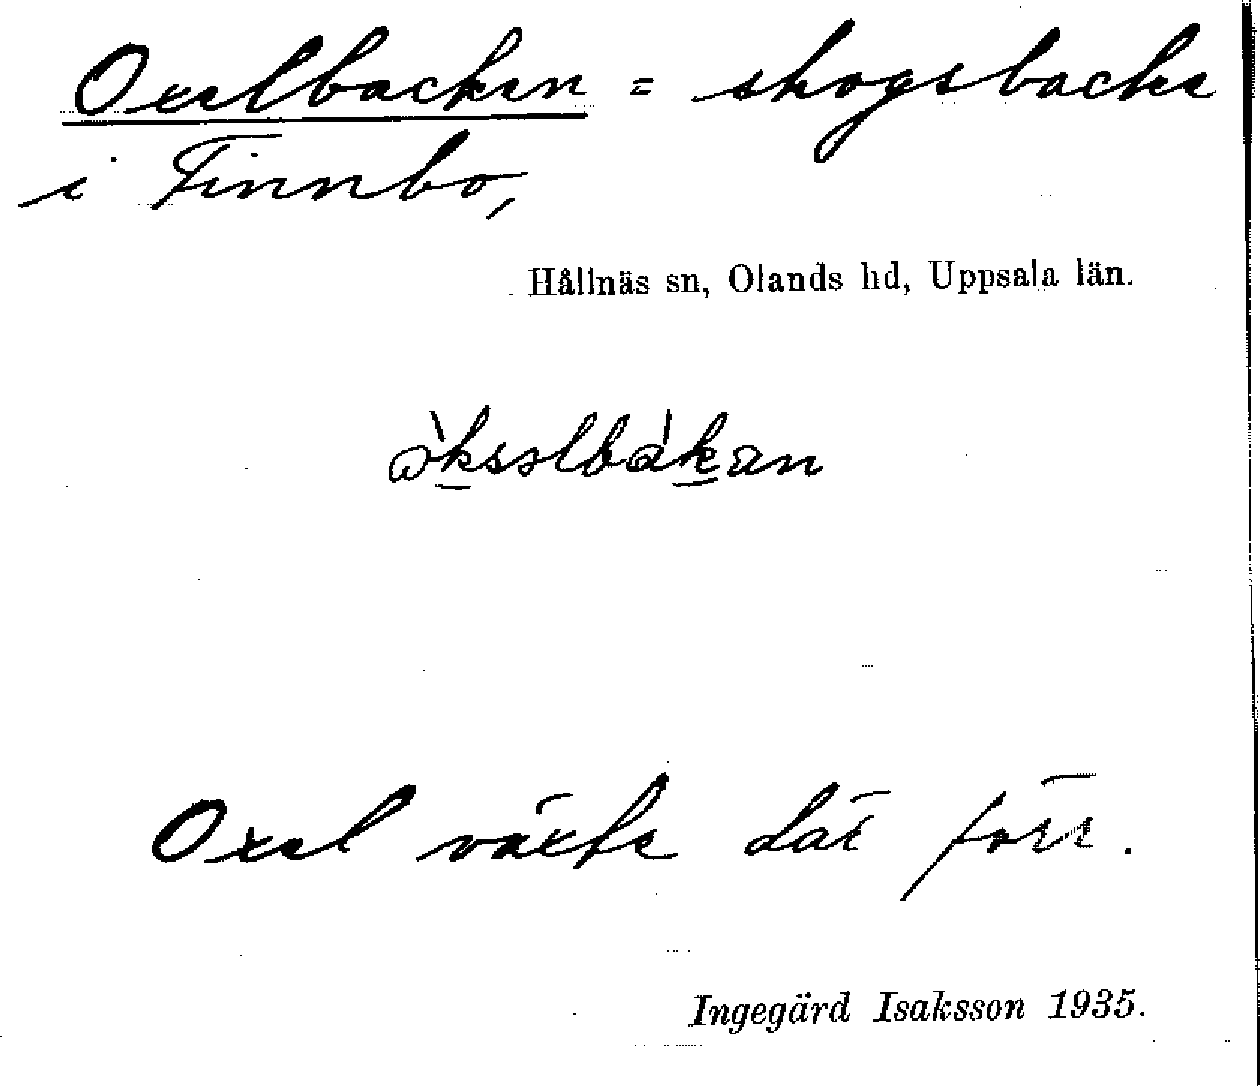 Oxelbacken = skogsbacke
i Finnbo,
Hållnäs sn, Olands hd, Uppsala län.
Oxel växte där förr.
Ingegärd Isaksson 1935.